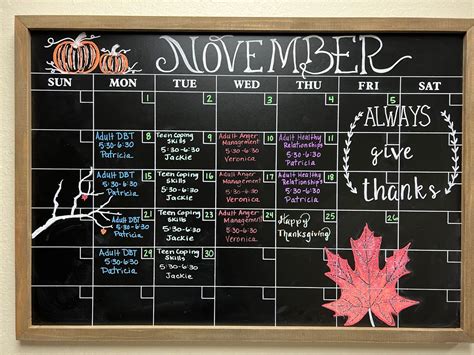 NOVEMBER
SUN MON TUE WED THU FRI SAT
1 2 3 4 5
8 9 10 11
Adult DBT
5:30-6:30
Patricia
Teen Coping
Skills
5:30-6:30
Jackie
Adult Anger
Management
5:30-6:30
Veronica
Adult Healthy
Relationships
5:30-6:30
Patricia
ALWAYS
give
thanks
15 16 17 18
Adult DBT
5:30-6:30
Patricia
Teen Coping
Skills
5:30-6:30
Jackie
Adult Anger
Management
5:30-6:30
Veronica
Adult Healthy
Relationships
5:30-6:30
Patricia
24 25 26
Adult DBT
5:30-6:30
Patricia
Teen Coping
Skills
5:30-6:30
Jackie
Adult Anger
Management
5:30-6:30
Veronica
Happy
Thanksgiving
29 30
Adult DBT
5:30-6:30
Patricia
Teen Coping
Skills
5:30-6:30
Jackie